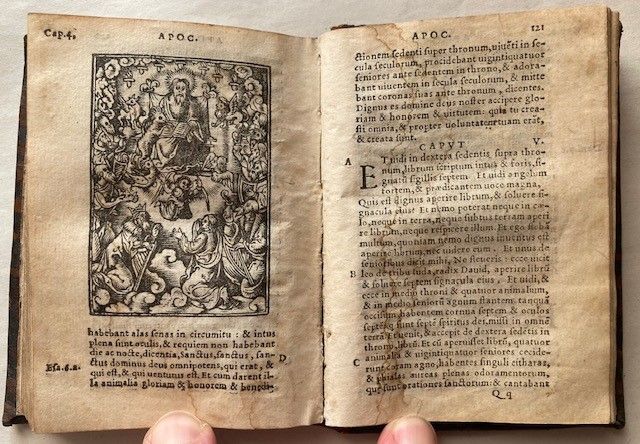 Cap.4. APOC.
habebant alas senas in circumitu: & intus
plena sunt oculis, & requiem non habebant
die ac nocte, dicentia, Sanctus, sanctus, san-
ctus dominus deus omnipotens, qui erat, & D
Esa.6.a. qui est, & qui uenturus est. Et cum darent il-
la animalia gloriam & honorem & benedi-
APOC. 121
ctionem sedenti super thronum, uiuēti in se-
cula seculorum, procidebant uigintiquatuor
seniores ante sedentem in throno, & adora-
bant uiuentem in secula seculorum, & mitte
bant coronas suas ante thronum, dicentes.
Dignus es domine deus noster accipere glo-
riam & honorem & uirtutem: quia tu crea-
sti omnia, & propter uoluntatem tuam erāt,
& creata sunt.
CAPVT V.
A ET uidi in dextera sedentis supra thro-
num, librum scriptum intus & foris, si-
gnatū sigillis septem. Et uidi angelum
fortem, & prædicantem uoce magna,
Quis est dignus aperire librum, & soluere si-
gnacula eius? Et nemo poterat neque in cæ-
lo, neque in terra, neque subtus terram aperi
re librum, neque respicere illum. Et ego flebā
multum, quoniam nemo dignus inuentus est
aperire librū, nec uidere eum. Et unus de
senioribus dicit mihi, Ne fleueris: ecce uicit
B leo de tribu Iuda, radix Dauid, aperire librū
& soluere septem signacula eius. Et uidi, &
ecce in medio throni & quatuor animalium,
& in medio seniorū agnum stantem tanquā
occisum, habentem cornua septem & oculos
septē, qui sunt septē spiritus dei, missi in omnē
terrā. Et uenit, & accepit de dextera sedētis in
throno, librū. Et cū aperuisset librū, quatuor
animalia & uigintiquatuor seniores cecide-
C runt coram agno, habentes singuli citharas,
& phialas aureas plenas odoramentorum,
quæ sunt orationes sanctorum: & cantabant
Qq